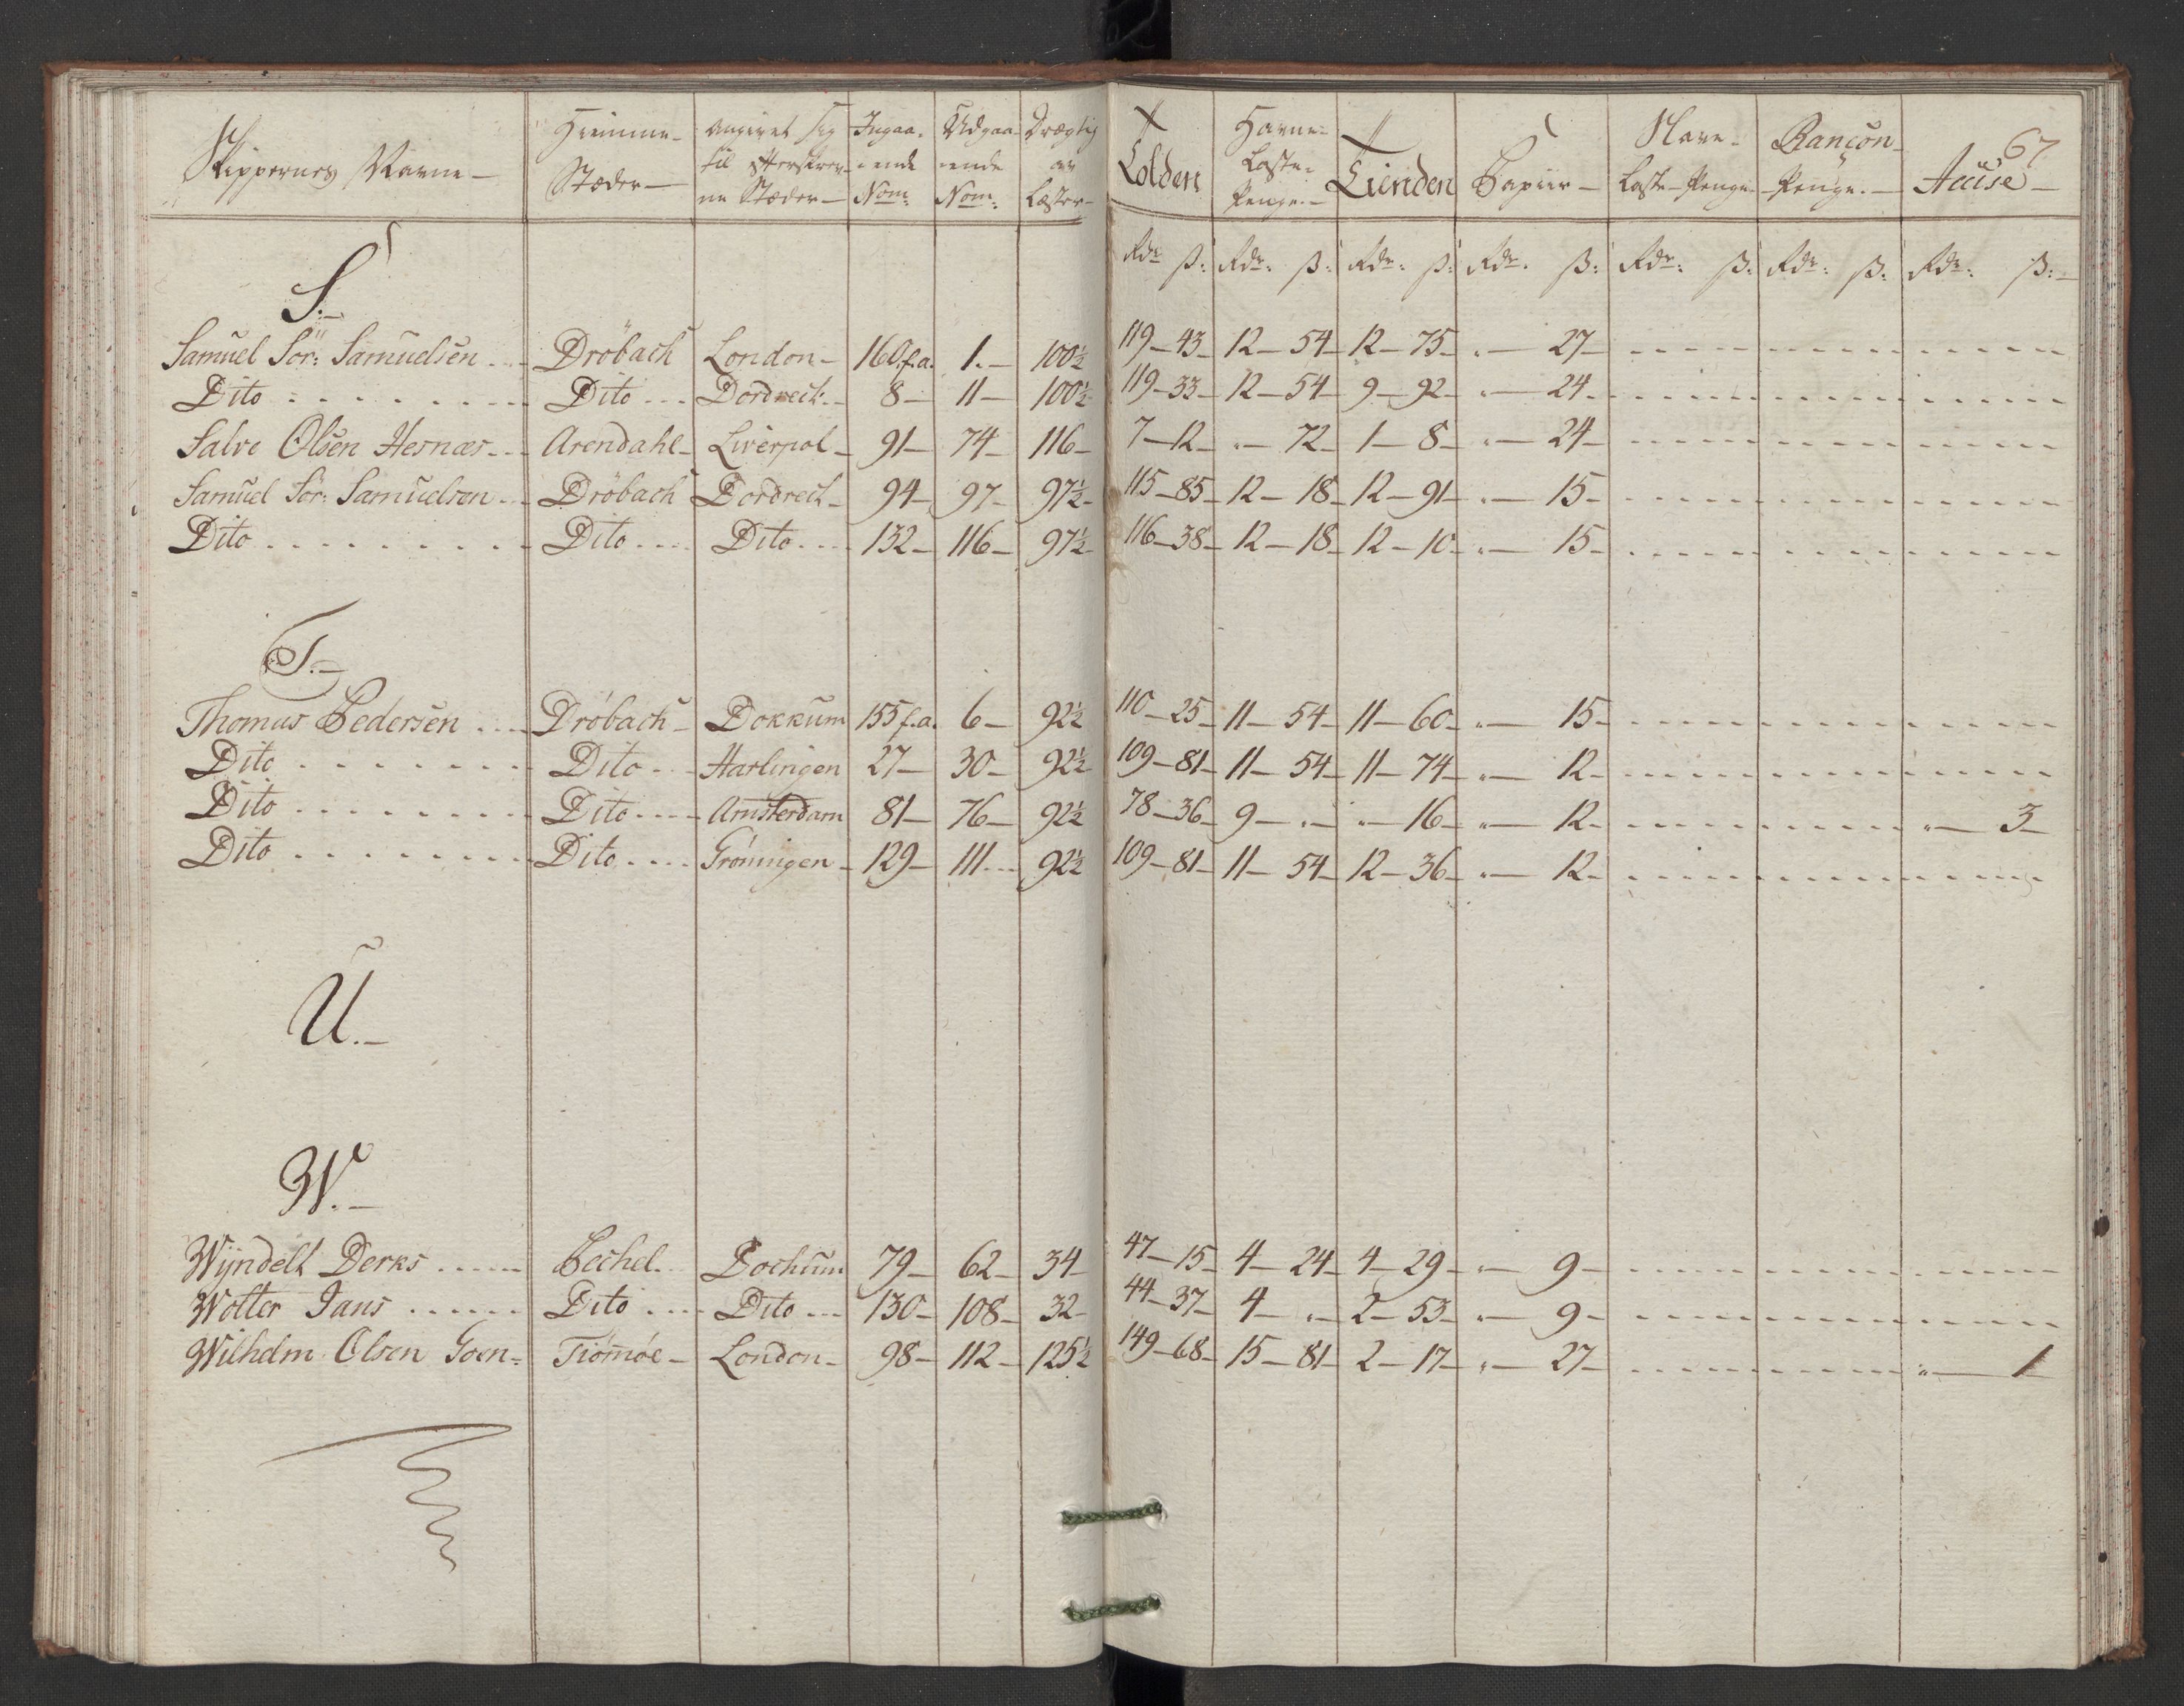 Skippernes Navne — Hiemme- Stæder — Angivet sig til efterskrev-ne Stæder — Ingaa-ende Nom: Udgaa-ende Nom: Drægtig av Læster — Tolden Havne-Laste-Penge. — Tienden Papiir — Slave-Laste-Penge Rançon-Penge. — Accise — 67
Rdr ß: Rdr: ß: Rdr: ß: Rdr. ß: Rdr: ß: Rdr: ß: Rdr: ß: —
S. —
Samuel Sör: Samuelsen ... Dröbach London — 160 f.a. 1. — 100½ 119 — 43 — 12 — 54 — 12 — 75 — „ — 27 —
Dito ........ Dito ... Dordrect: — 8 — 11 — 100½ 119 — 33 — 12 — 54 — 9 — 92 — „ — 24 —
Salve Olsen Hesnæs ... Arendahl — Liverpol — 91 — 74 — 116 — 7 — 12 — „ — 72 — 1 — 8 — „ — 24 —
Samuel Sör: Samuelsen ... Dröbach Dordrect — 94 — 97 — 97½ — 115 — 85 — 12 — 18 — 12 — 91 — „ — 15 —
Dito ........ Dito .... Dito .... 132 — 116 — 97½ — 116 — 38 — 12 — 18 — 12 — 10 — „ — 15 —
T. —
Thomas Pedersen .... Dröbach — Dokkum 155 f.a. 6 — 92½ 110 — 25 — 11 — 54 — 11 — 60 — „ — 15 —
Dito ....... Dito ... Harlingen 27 — 30 — 92½ 109 — 81 — 11 — 54 — 11 — 74 — „ — 12 —
Dito ....... Dito .... Amsterdam 81 — 76 — 92½ 78 — 36 — 9 — „ — „ — 16 — „ — 12 — „ — 3 —
Dito ........ Dito .... Gröningen — 129 — 111 ... 92½ 109 — 81 — 11 — 54 — 12 — 36 — „ — 12 —
U. —
W. —
Wijndelt Derks ..... Pechel.. Dochum 79 — 62 — 34 — 47 — 15 — 4 — 24 — 4 — 29 — „ — 9 —
Wolter Jans ...... Dito .... Dito ... 130 — 108 — 32 — 44 — 37 — 4 — „ — 2 — 53 — „ — 9 —
Wilhelm Olsen Goen = Tiömöe — London — 98 — 112 — 125½ 149 — 68 — 15 — 81 — 2 — 17 — „ — 27 — „ — 1